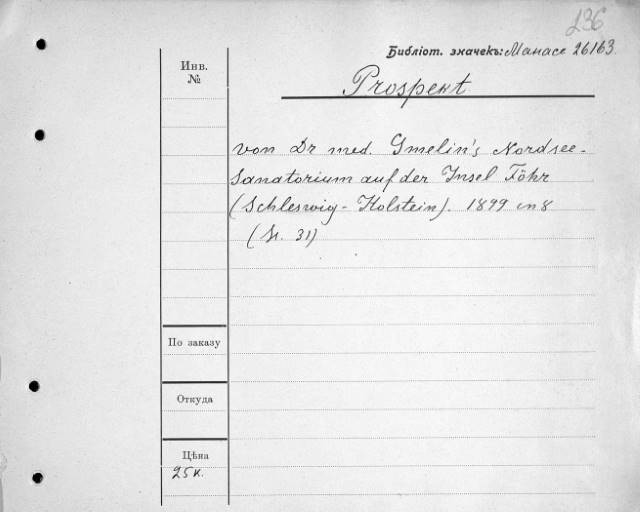 236
Библіот. значекъ: Манасе 26163.
Инв.
№
Prospekt
von Dr med. Gmelin's Nordsee-
Sanatorium auf der Insel Föhr
(Schleswig-Holstein). 1899 in 8
(S. 31)
По заказу
Откуда
Цѣна
25 к.